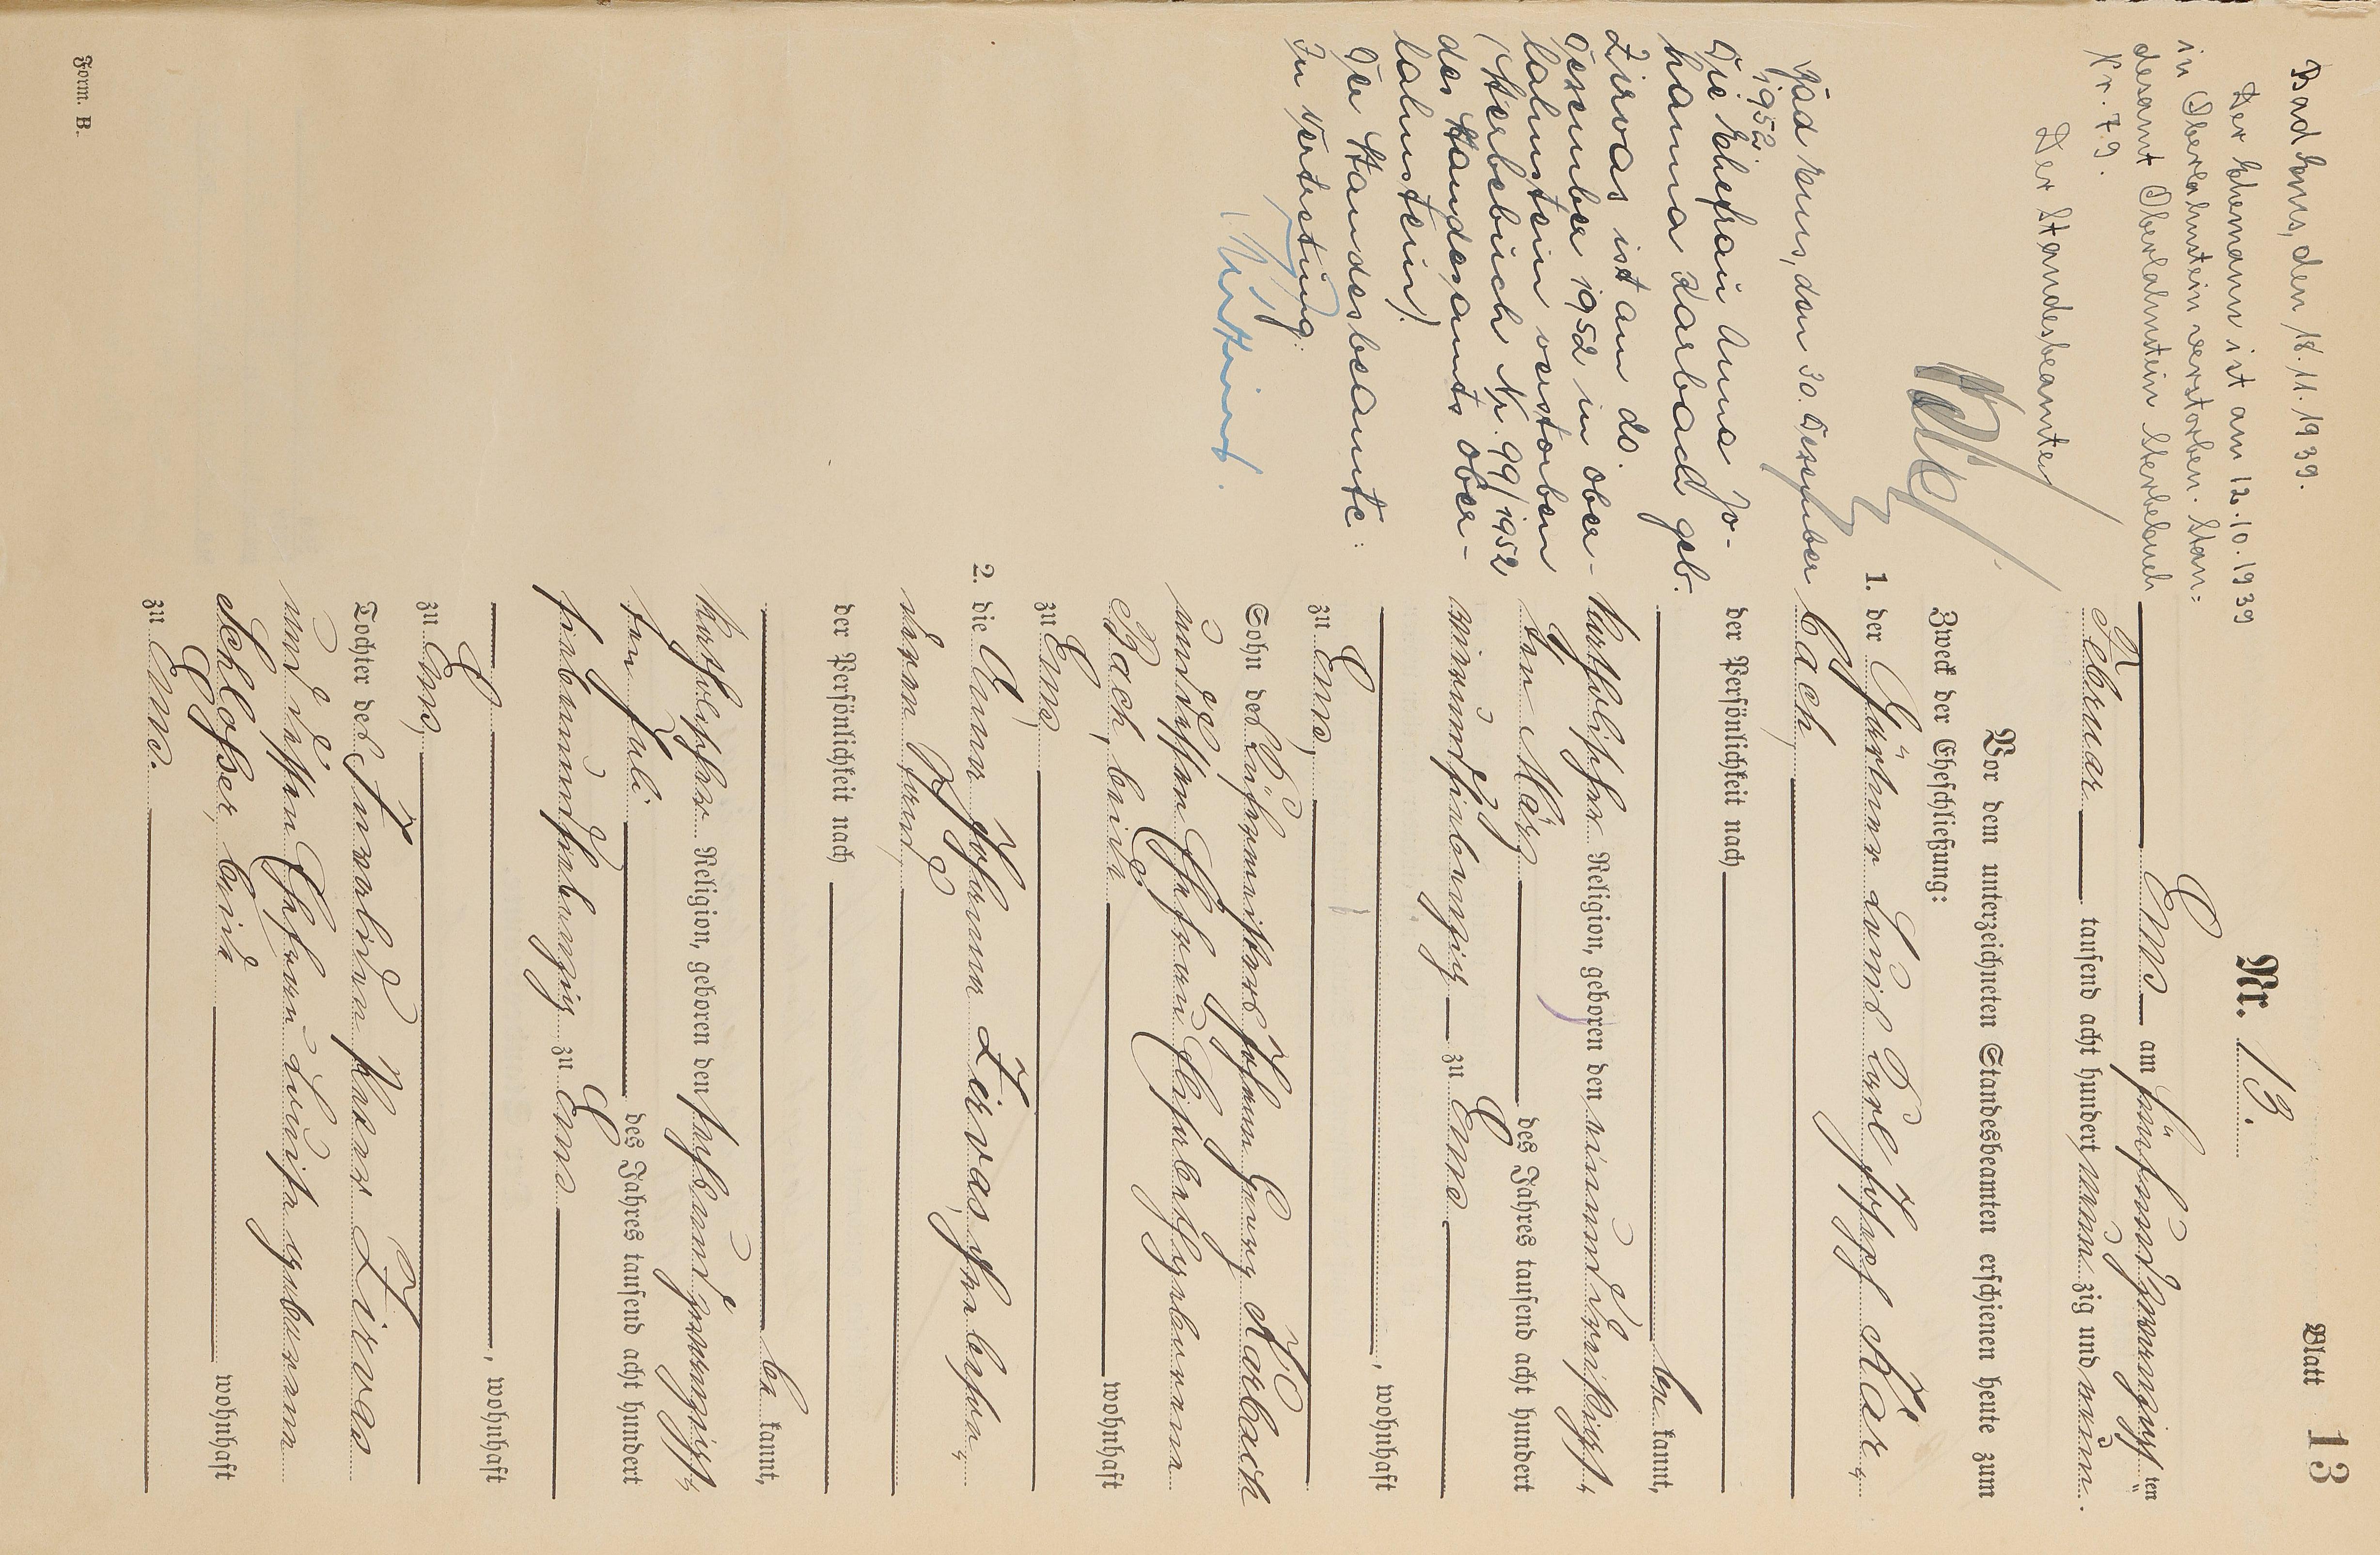 Blatt 13
Nr. 13.
Ems am fünfundzwanzigsten
Februar tausend acht hundert neunzig und neun.
Vor dem unterzeichneten Standesbeamten erschienen heute zum
Zweck der Eheschließung:
1. der Gärtner Louis Carl Josef Kar-
bach,
der Persönlichkeit nach
be kannt,
katholischer Religion, geboren den einunddreißigs-
ten März des Jahres tausend acht hundert
einundsiebenzig zu Ems
, wohnhaft
zu Ems,
Sohn des Küfermeisters Johann Georg Karbach
und dessen Ehefrau Elisabeth geborenen
Bach, beide wohnhaft
zu Ems,
2. die Anna Johanna Zirvas, ohne beson-
deren Stand,
der Persönlichkeit nach
be kannt,
katholischer Religion, geboren den sechsundzwanzigs-
ten Juli des Jahres tausend acht hundert
siebenundsiebenzig zu Ems
, wohnhaft
zu Ems,
Tochter des Zirvas
und dessen Ehefrau Louise geborenen
Schlosser, beide wohnhaft
zu Ems.
Bad Ems, den 18.11.1939.
Der Ehemann ist am 12.10.1939
in Oberlahnstein verstorben. Stan-
desamt Oberlahnstein Sterbebuch
Nr. 79.
Der Standesbeamte
Bad Ems, den 30. Dezember
1952.
Die Ehefrau Anna Jo-
hanna Karbach geb.
Zirvas ist am 20.
Dezember 1952 in Ober-
lahnstein verstorben
(Sterbebuch Nr. 99/1952
des Standesamts Ober-
lahnstein).
Der Standesbeamte:
In Vertretung:
Form. B.